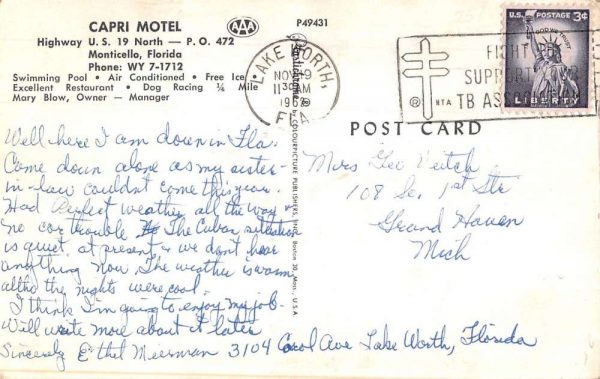 CAPRI MOTEL
AAA
P49431
Highway U. S. 19 North — P. O. 472
Monticello, Florida
Phone: WY 7-1712
Swimming Pool • Air Conditioned • Free Ice
Excellent Restaurant • Dog Racing ¼ Mile
Mary Blow, Owner — Manager
Well here I am down in Fla.
Come down alone as my sister-
in-law couldn't come this year.
Had Perfect weather all the way &
no car trouble The Cuban situation
is quiet at present & we don't hear
anything now. The weather is warm
altho the nights were cool.
I think I'm going to enjoy my job-
Will write more about it later
Sincerely Ethel Meesman 3104 Coral Ave Lake Worth, Florida
by COLOURPICTURE PUBLISHERS, INC., Boston 30, Mass., U.S.A.
LAKE WORTH,
NOV 9
11 30 AM
1962
FLA
FIGHT TB
SUPPORT YOUR
NTA TB ASSOCIATION
U.S. POSTAGE 3¢
IN GOD WE TRUST
LIBERTY
POST CARD
Mrs Geo Veitch
108 So. 1st Str
Grand Haven
Mich